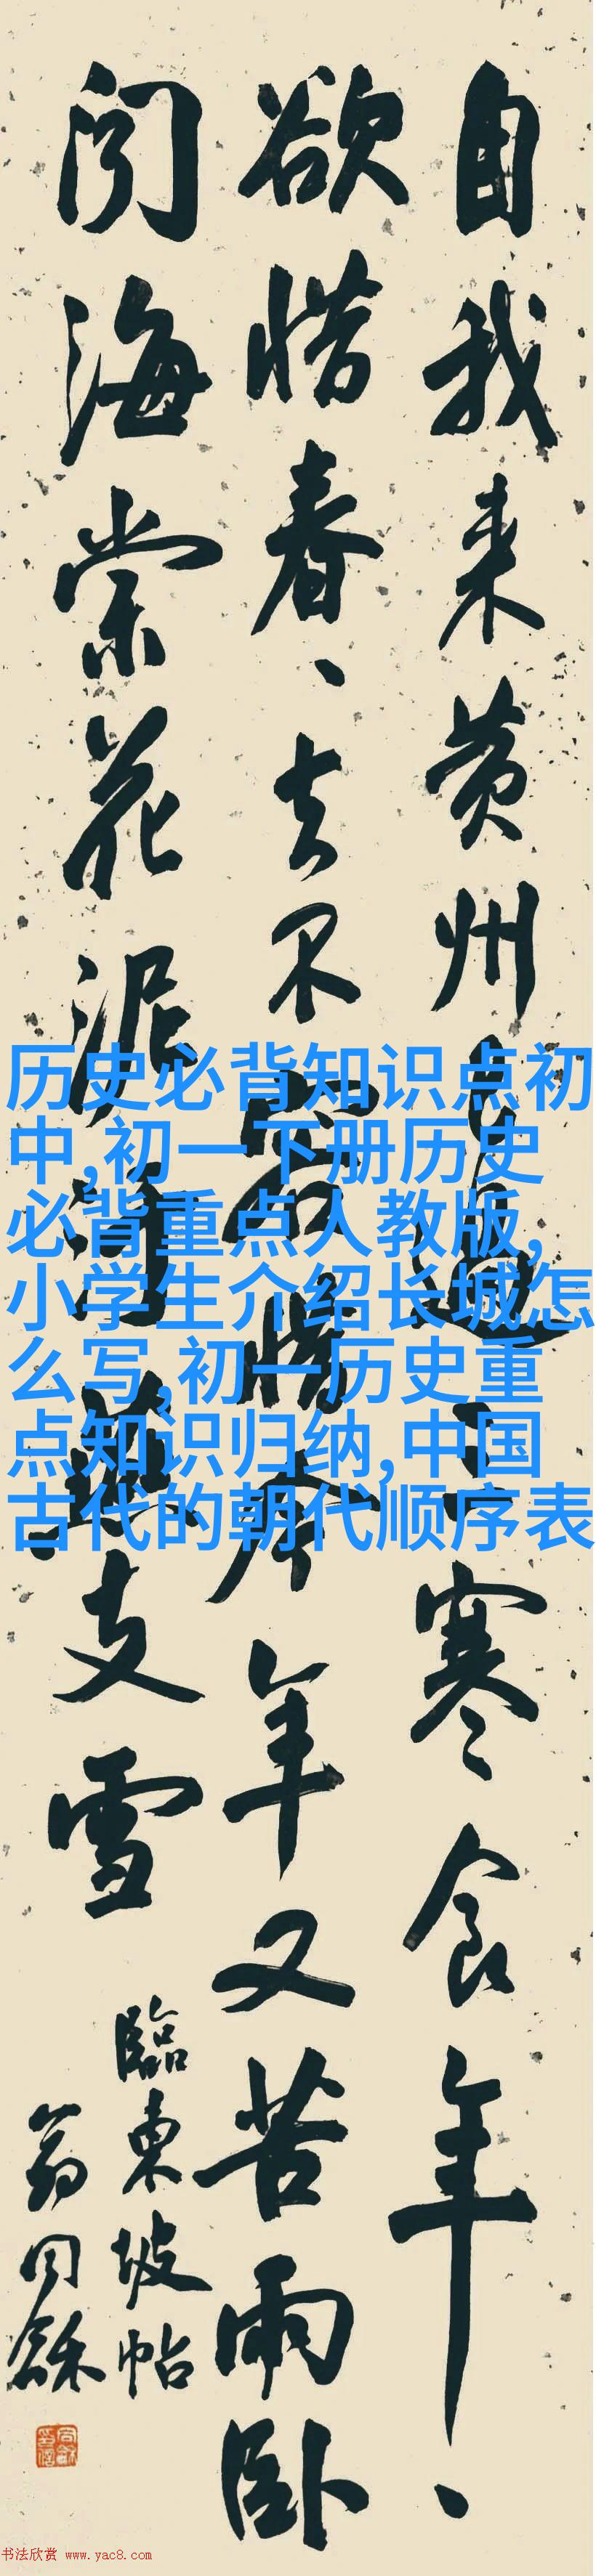 自我来黄州已過三寒食年、
欲惜春、去不容惜今年又苦雨卧
聞海棠花泥污燕支雪
臨東坡帖
翁同龢
历史必背知识点初
中,初一下册历史
必背重点人教版,
小学生介绍长城怎
么写,初一历史重
点知识归纳,中国
古代的朝代顺序表
书法欣赏 www.yac8.com